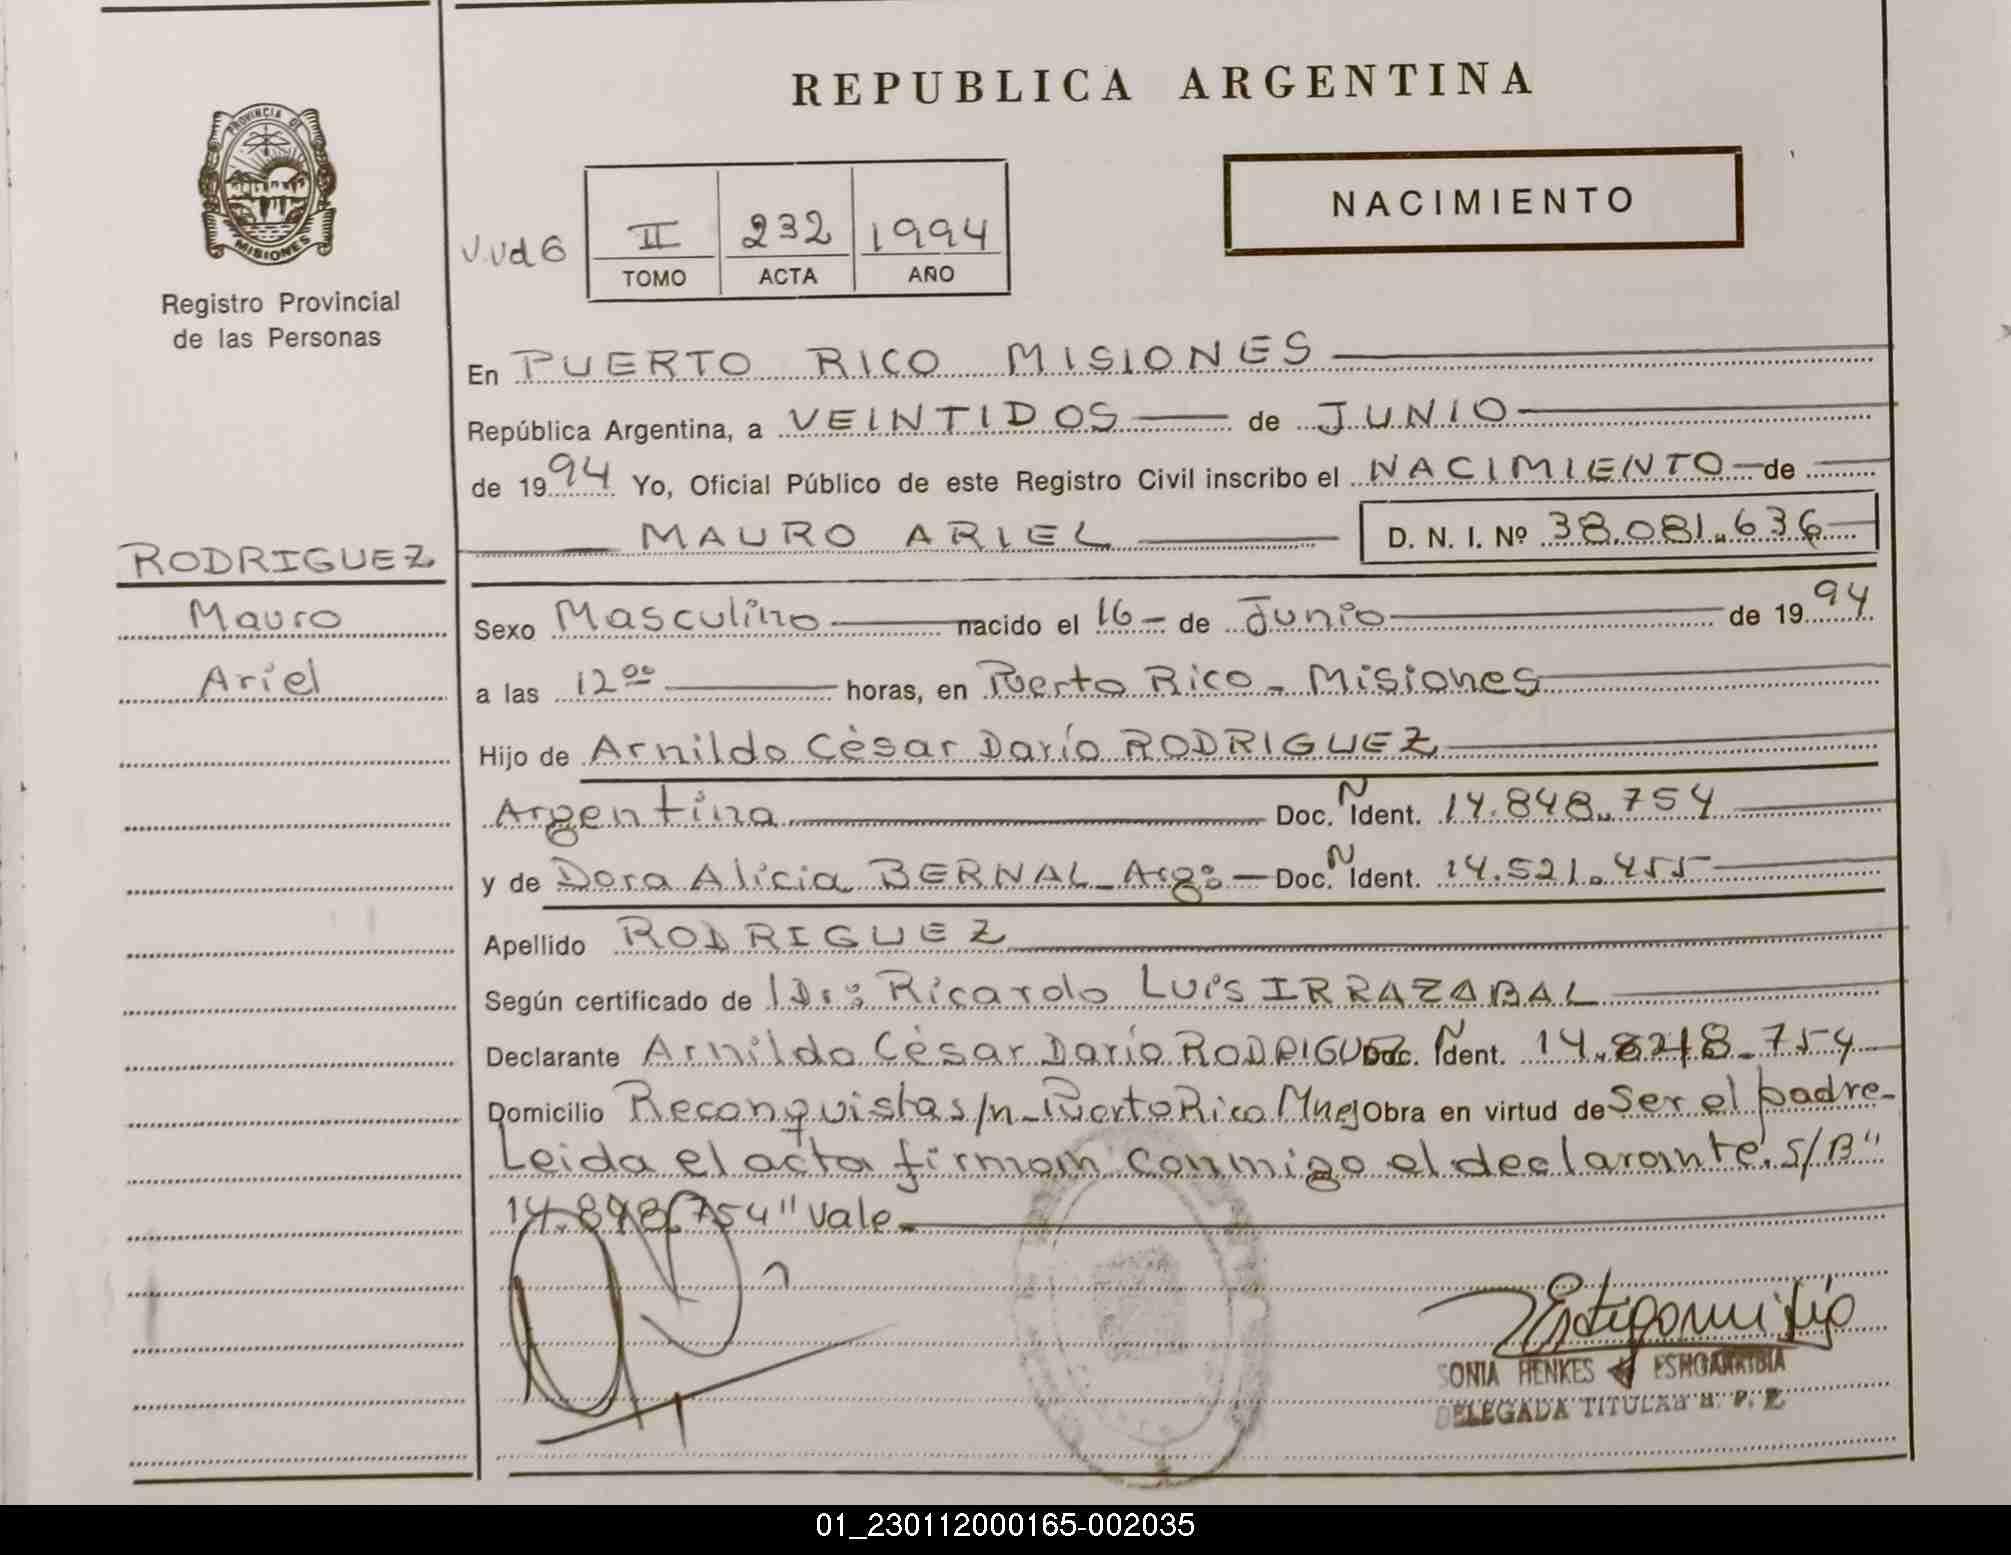 REPUBLICA ARGENTINA
PROVINCIA DE
MISIONES
Registro Provincial
de las Personas
NACIMIENTO
II 232 1994
TOMO ACTA AÑO
En PUERTO RICO MISIONES
República Argentina, a VEINTIDOS de JUNIO
de 1994 Yo, Oficial Público de este Registro Civil inscribo el NACIMIENTO de
MAURO ARIEL D. N. I. Nº 38.081.636
RODRIGUEZ
Mauro
Ariel
Sexo Masculino nacido el 16 de Junio de 1994
a las 12⁰⁰ horas, en Puerto Rico - Misiones
Hijo de Arnildo César Darío RODRIGUEZ
Argentina Doc. N Ident. 14.848.754
y de Dora Alicia BERNAL - Arg: Doc. N Ident. 14.521.455
Apellido RODRIGUEZ
Según certificado de Dr: Ricardo Luis IRRAZABAL
Declarante Arnildo César Darío RODRIGUEZ Doc. N Ident. 14.848.754
Domicilio Reconquista s/n - Puerto Rico Mnes Obra en virtud de Ser el padre-
Leida el acta firman conmigo el declarante. S/B"
14.848.754" Vale.
SONIA HENKES
DELEGADA TITULAR R. P. P.
01_230112000165-002035